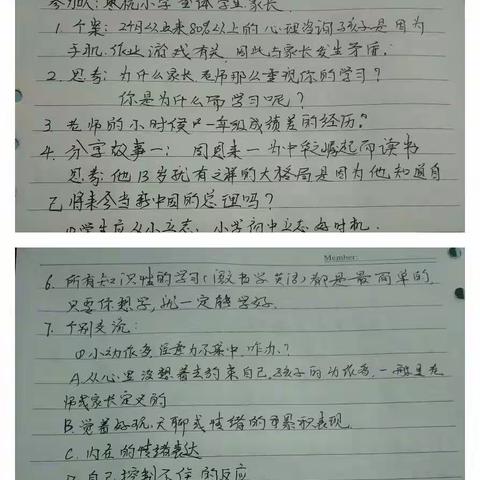 参加人：奥悦小学全体学生家长
1. 个案：24月以五来80%以上的心理咨询孩子是因为
手机、作业、游戏有关，因此与家长发生矛盾。
2. 思考：为什么家长、老师那么重视你的学习？
你是为什么而学习呢？
3. 老师的小时候"一年级成绩差的经历"。
4. 分享故事一：周恩来一为中华崛起而读书
思考：他13岁就有这样的大格局是因为他知道自
己将来会当新中国的总理吗？
①学生应从小立志，小学初中立志好时机．
Member:
6. 所有知识性的学习（语数英）都是最简单的，
只要你想学，就一定能学好．
7. 个别交流：
①小动作多注意力不集中，咋办？
A.从心里没想着去约束自己，孩子的动作多，一般是老
师或家长定义的
B.觉着好玩、无聊或情绪的累积表现．
C.内在的情绪表达
D.自己控制不住的反应